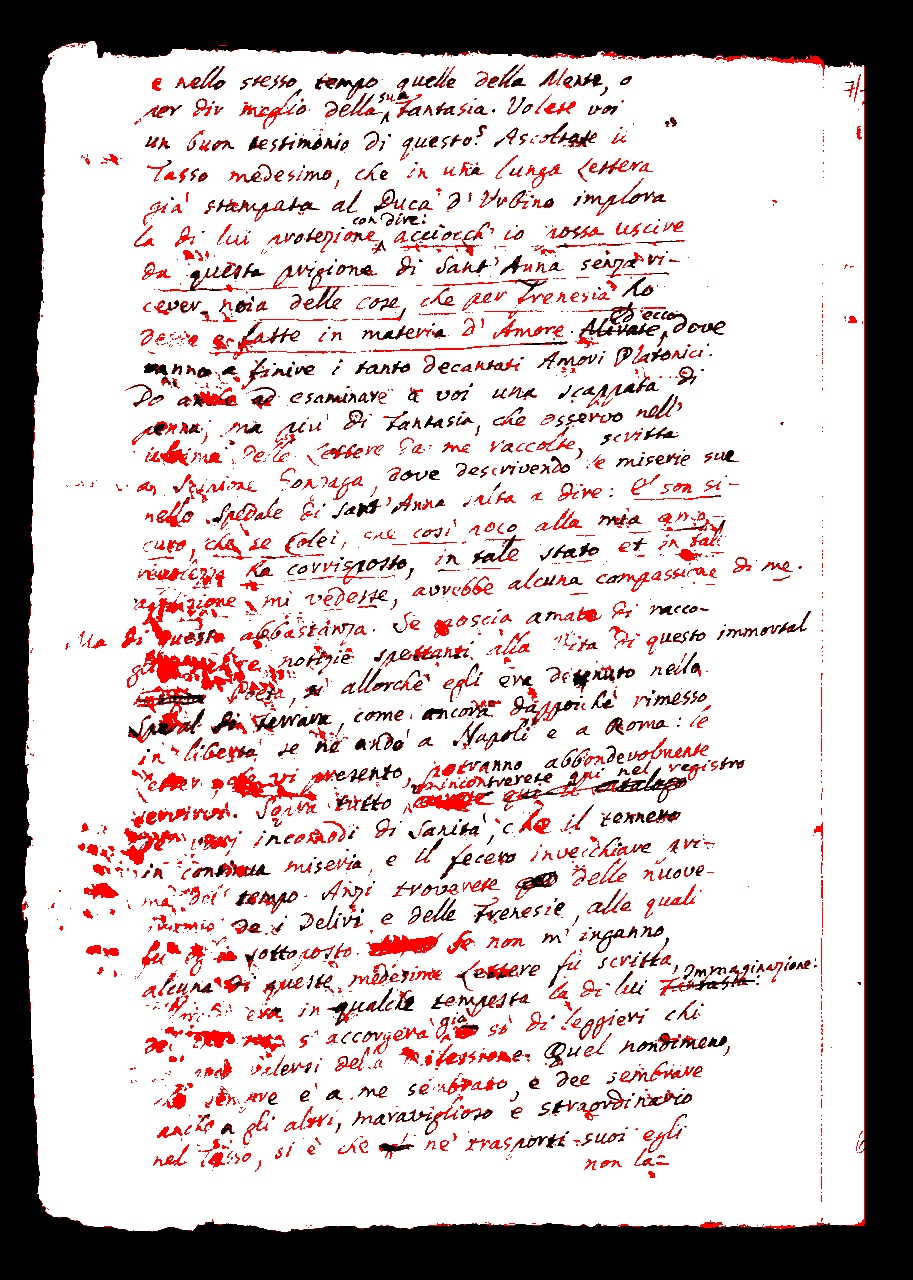 e nello stesso tempo quelle della Mente, o
per dir meglio della sua Fantasia. Volete voi
un buon testimonio di questo? Ascoltate il
Tasso medesimo, che in una lunga Lettera
già stampata al Duca d'Urbino implora
la di lui protezione con dire: acciocch' io possa uscire
da questa prigione di Sant' Anna senza ri-
cever noia delle cose, che per Frenesia ho
dette e fatte in materia d' Amore. Ed ecco dove
vanno a finire i tanto decantati Amori Platonici.
Do ad esaminare a voi una scappata di
penna, ma più di Fantasia, che osservo nell'
ultima delle Lettere da me raccolte, scritta
a Scipione Gonzaga, dove descrivendo le miserie sue
nello Spedale di Sant' Anna salta a dire: E son si-
curo, che se Colei, che così poco alla mia amo-
revolezza ha corrisposto, in tale stato et in tale
afflizione mi vedesse, avrebbe alcuna compassione di me.
Ma di questo abbastanza. Se poscia amate di racco-
gliere notizie spettanti alla Vita di questo immortal
Poeta, sì allorchè egli era detenuto nello
Spedal di Ferrara, come ancora dappoichè rimesso
in libertà se ne andò a Napoli e a Roma: le
Lettere vi presento, potranno abbondevolmente
servirvi. Sopra tutto incontrerete qui nel registro
de' varj incomodi di Sanità, che il tennero
in continua miseria, e il fecero invecchiare pri-
ma del tempo. Anzi troverete delle nuove
de i Delirj e delle Frenesie, alle quali
fu egli sottoposto. Se non m' inganno,
alcuna di queste medesime Lettere fu scritta,
era in qualche tempesta la di lui Immaginazione:
s' accorgerà già sì di leggieri chi
valersi della Riflessione. Quel nondimeno,
che sempre è a me sembrato, e dee sembrare
anche a gli altri, maraviglioso e straordinario
nel Tasso, si è che ne' trasporti suoi egli
non la-